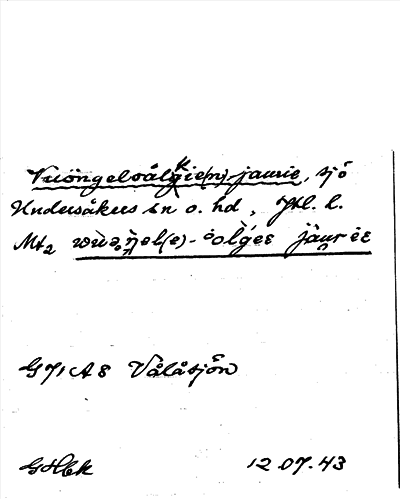 Vuöngelvålgie(n)-jaurie, sjö
Undersåkers sn o. hd, Jtl. l.
Mt2 wùə̯ŋel(e)-ò̀lgɛɛ jäu̯rɛɛ
G71 A8 Vålåsjön
GHbk 12.07.43